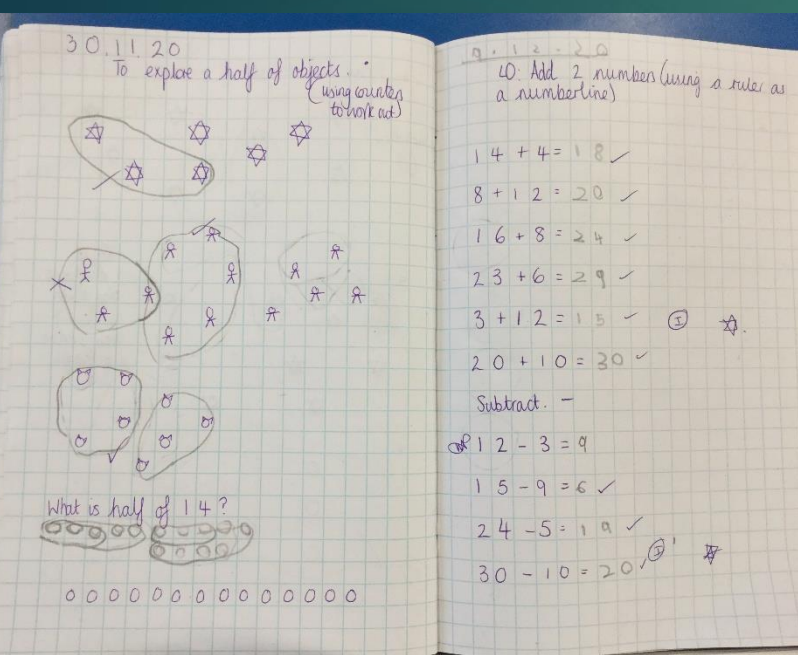 30.11.20
To explore a half of objects.
(using counters
to work out)
What is half of 14?
9.12.20
LO: Add 2 numbers (using a ruler as
a numberline)
14 + 4 = 18 ✓
8 + 12 = 20 ✓
16 + 8 = 24 ✓
23 + 6 = 29 ✓
3 + 12 = 15 ✓ I
20 + 10 = 30 ✓
Subtract. -
12 - 3 = 9
15 - 9 = 6 ✓
24 - 5 = 19 ✓
30 - 10 = 20 ✓ I